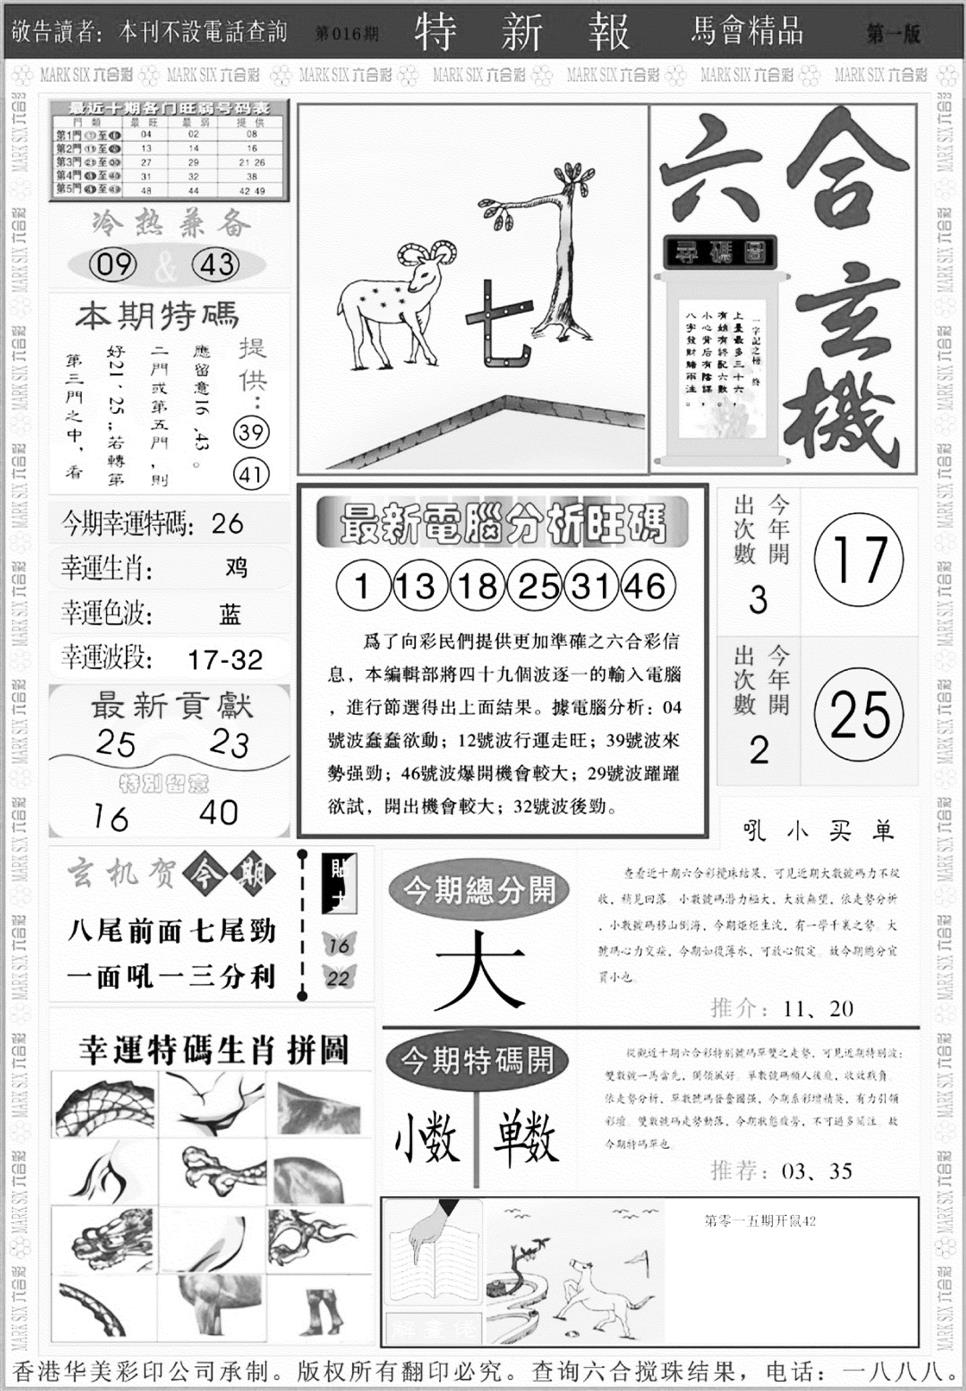 敬告讀者：本刊不設電話查詢
第016期
特新報
馬會精品
第一版
MARK SIX 六合彩 MARK SIX 六合彩 MARK SIX 六合彩 MARK SIX 六合彩 MARK SIX 六合彩 MARK SIX 六合彩 MARK SIX 六合彩
最近十期各门旺弱号码表
門類 最旺 最弱 提供
第1門 至 04 02 08
第2門 至 13 14 16
第3門 至 27 29 21 26
第4門 至 31 32 38
第5門 至 48 44 42 49
冷热兼备
09 & 43
本期特碼
第三門之中，看
好21、25；若轉第
二門或第五門，則
應留意16、43。
提供：
39
41
今期幸運特碼：26
幸運生肖：鸡
幸運色波：蓝
幸運波段：17-32
最新貢獻
25 23
特別留意
16 40
七
六合玄機
尋碼圖
上量最多三十六，
有娘有終配六數。
小心背后有陰謀，
八字發財賭兩注。
最新電腦分析旺碼
1 13 18 25 31 46
爲了向彩民們提供更加準確之六合彩信
息，本編輯部將四十九個波逐一的輸入電腦
，進行節選得出上面結果。據電腦分析：04
號波蠢蠢欲動；12號波行運走旺；39號波來
勢强勁；46號波爆開機會較大；29號波躍躍
欲試，開出機會較大；32號波後勁。
今年開
出次數
3
17
今年開
出次數
2
25
吼小买单
玄机贺今期
八尾前面七尾勁
一面吼一三分利
貼士
16
22
今期總分開
大
查看近十期六合彩攪珠結果，可見近期大數號碼力不從
收，稍見回落。小數號碼潜力極大，大放無望，依走勢分析
，小數號碼移山倒海，今期炬炬生沈，有一學千裏之勢。大
號碼心力交瘁，今期如復薄水，可放心假定。故今期總分宜
買小也。
推介：11、20
今期特碼開
小数 单数
從觀近十期六合彩特别號碼單雙之走勢，可見近期特别波：
雙數號一馬當先，開領風好。單數號碼頻人後塵，收效戰負。
依走勢分析，單數號碼發奮圖强，今期系彩壇精英，有力引領
彩壇。雙數號碼走勢動落，今期狀態疲勞，不可過多關注。故
今期特碼單也。
推荐：03、35
幸運特碼生肖拼圖
解畫佬
第零一五期开鼠42
香港华美彩印公司承制。版权所有翻印必究。查询六合搅珠结果，电话：一八八八。